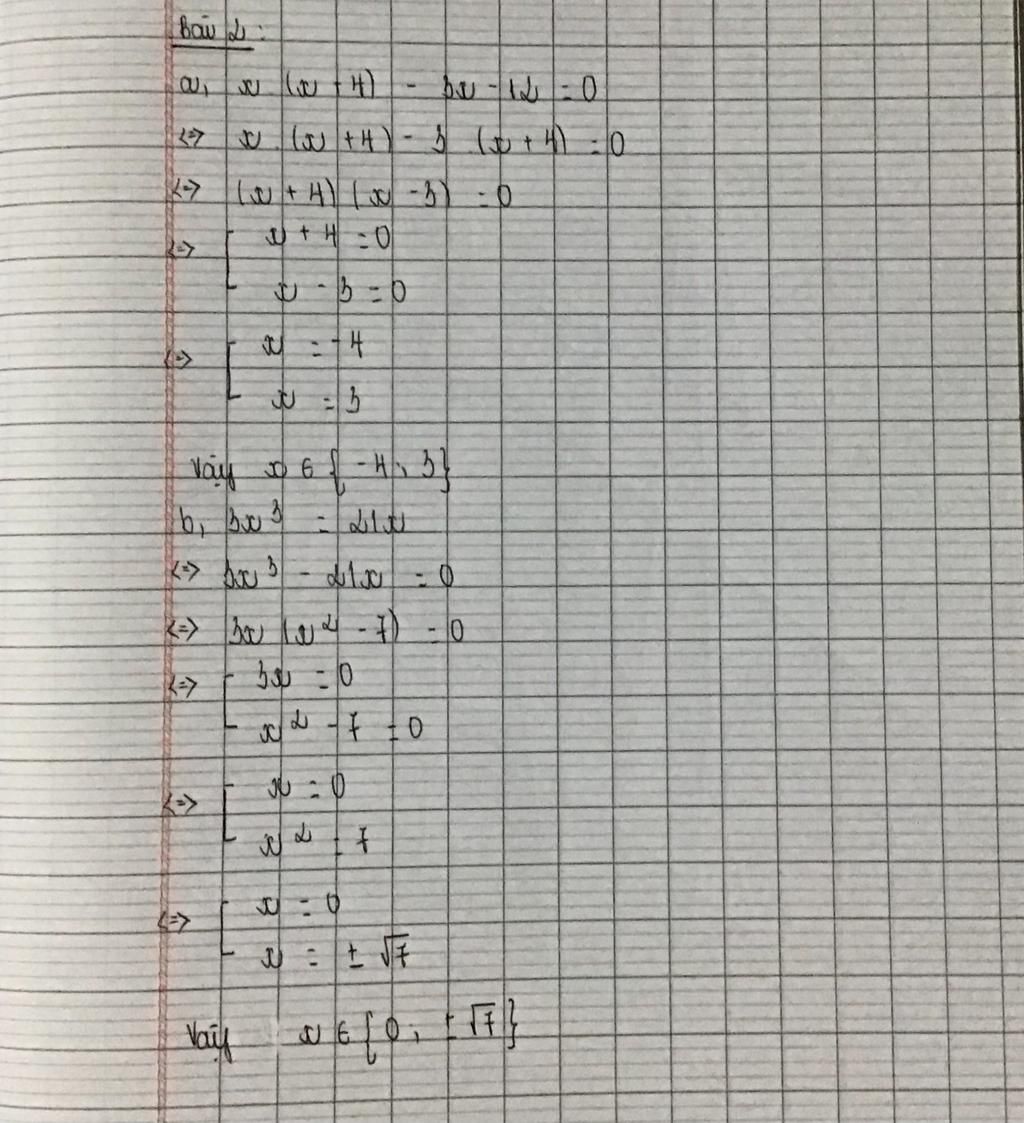 Bài 2:
a, x (x + 4) - 3x - 12 = 0
<=> x (x + 4) - 3 (x + 4) = 0
<=> (x + 4) (x - 3) = 0
<=> [ x + 4 = 0
x - 3 = 0
<=> [ x = -4
x = 3
Vậy x ∈ { -4 ; 3 }
b, 3x³ = 21x
<=> 3x³ - 21x = 0
<=> 3x (x² - 7) = 0
<=> [ 3x = 0
x² - 7 = 0
<=> [ x = 0
x² = 7
<=> [ x = 0
x = ± √7
Vậy x ∈ { 0 ; ± √7 }